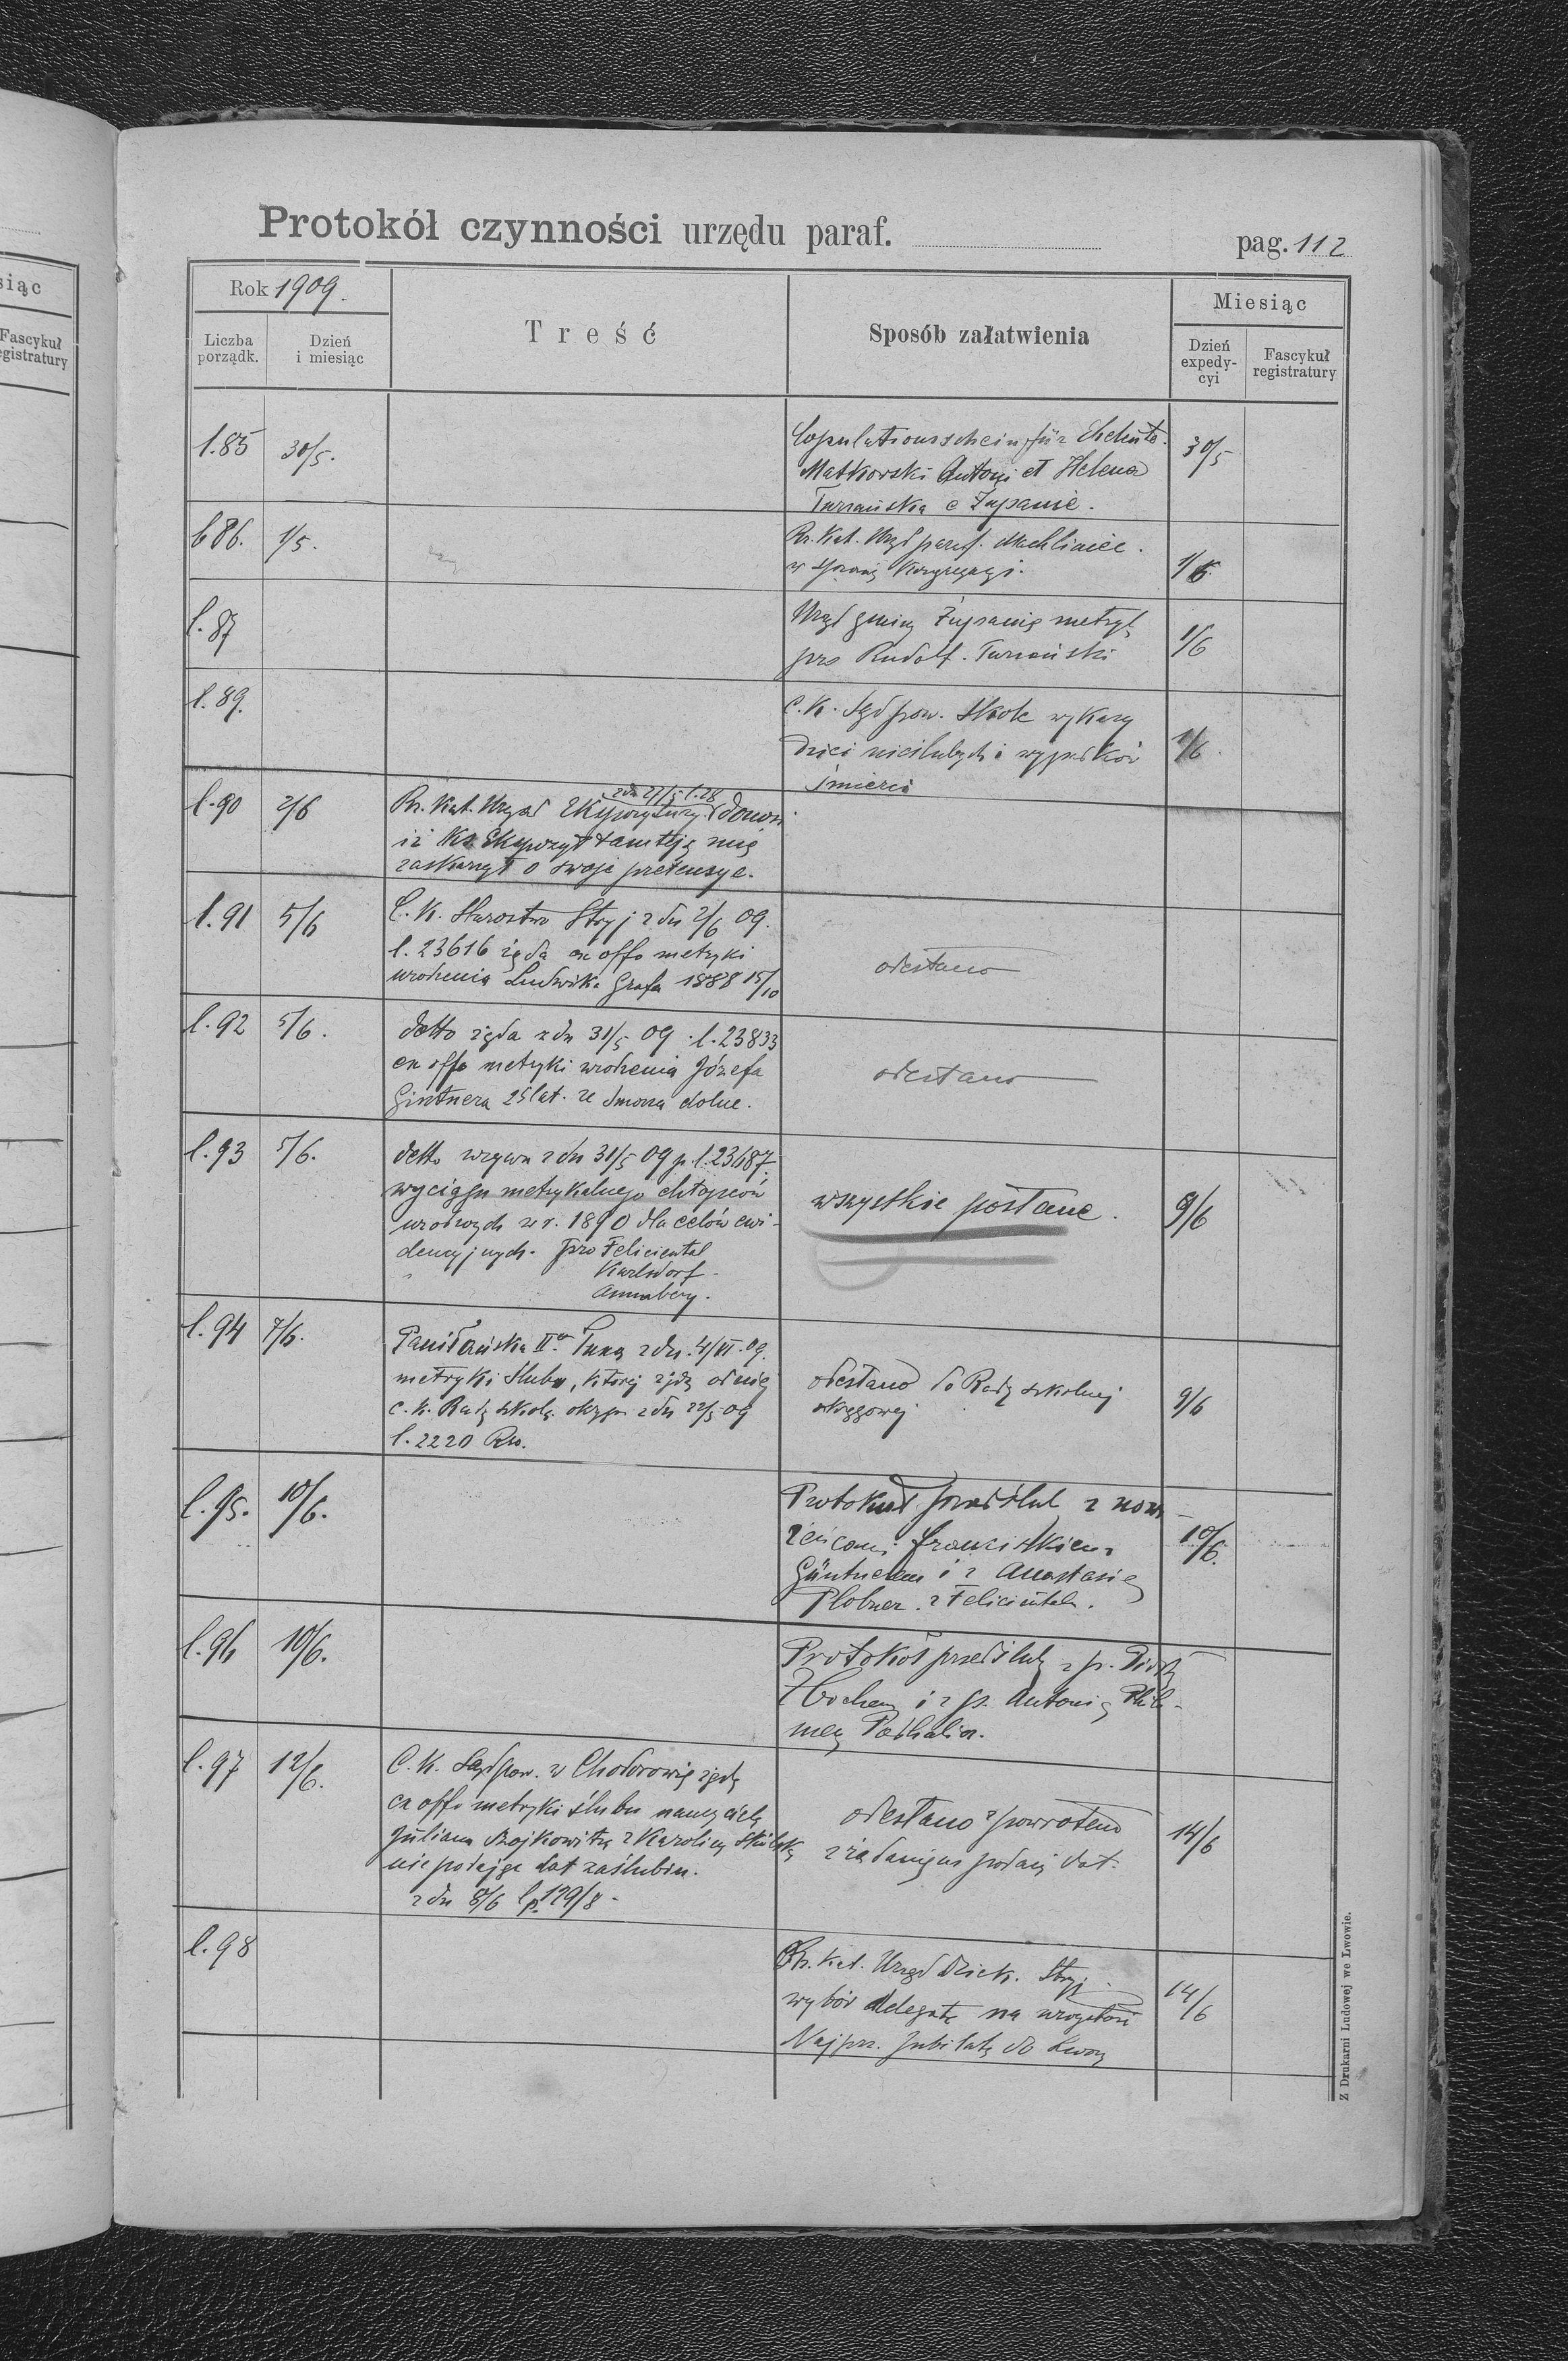 Protokół czynności urzędu paraf.
pag. 112
siąc
Fascykuł
egistratury
Rok 1909.
Liczba
porządk.
Dzień
i miesiąc
Treść
Sposób załatwienia
Miesiąc
Dzień
expedy-
cyi
Fascykuł
registratury
l.85 30/5. Copulationsschein für
Matkowski Antoni et Helena
Turzańska e Żupanie.
30/5
l.86. 1/5. Rz. Kat. Urząd paraf. Machliniec.
w sprawie Kongregacyi.
1/6.
l.87 Urząd gminy Żupanie metryk
pro Rudolf. Turzański
1/6
l.89. C. K. Sąd pow. Skole wykazy
dzieci nieślubych i wypadków
śmierci
1/6.
l.90 2/6 Rz. Kat. Urząd Ekspozytury donosi
zdn 27/5 l.28
iż Ks Ekspozyt tamtejs mię
zaskarżył o swoje pretensye.
l.91 5/6 C. K. Starostwo Stryj z dn 2/6 09.
l. 23616 żąda ex offo metryki
urodzenia Ludwika Grafa 1888 15/10
odesłano
l.92 5/6. detto żąda z dn 31/5 09 l. 23833
ex offo metryki urodzenia Józefa
Gintnera 25 lat. ze Smorza dolne.
odesłano
l.93 5/6. detto wzywa z dn 31/5 09 p. l. 23687.
wyciągu metrykalnego chłopców
urodzonych w r. 1890 dla celów ewi-
dencyjnych. pro Felicienthal
Karlsdorf
Annaberg.
wszystkie posłane.
9/6
l.94 7/6. z dn. 4/VI. 09.
metryki ślubu, której żąda od niej
c. k. Rada szkol. okręgu z dn 22/5 09
l. 2220
odesłano do Rady szkolnej
okręgowej
9/6
l.95. 10/6. Protokół przedślub z nowo-
żeńcami Franciszkiem
Güntnerem i z Anastasią
Plobner z Felicienthal.
10/6.
l.96 10/6. Protokół przedślub z p. Piotr
i z p. Antonią
l.97 12/6. C. K. Sąd pow. w Chodorowie żąda
ex offo metryki ślubu nauczyciela
Juliana z Karoliną
nie podając dat zaślubin.
z dn 8/6 lp. 129/8
odesłano z powrotem
z żądaniem podania dat.
14/6
l.98 Rz. kat. Urząd Dziek. Stryj
wybór delegata na uroczystość
Najprz. Jubilata do Lwowa
14/6
Z Drukarni Ludowej we Lwowie.